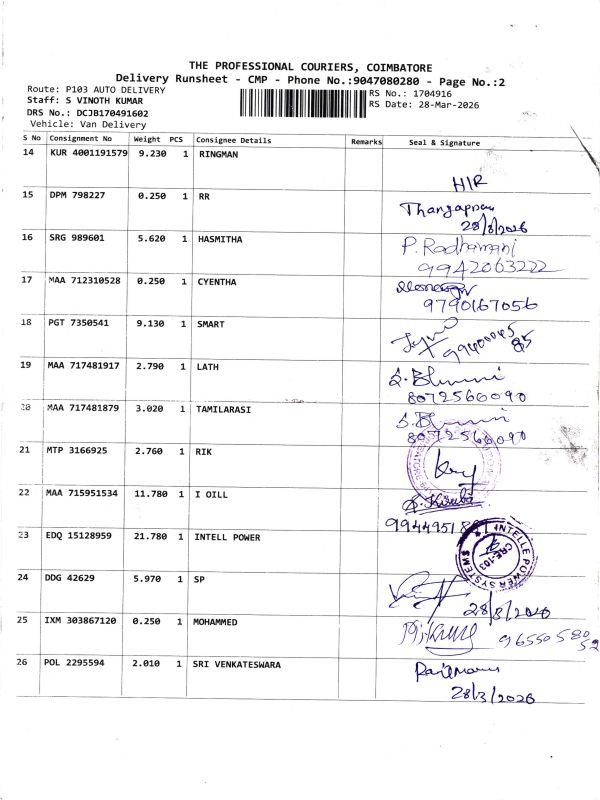 THE PROFESSIONAL COURIERS, COIMBATORE
Delivery Runsheet - CMP - Phone No.:9047080280 - Page No.:2
Route: P103 AUTO DELIVERY
Staff: S VINOTH KUMAR
DRS No.: DCJB170491602
Vehicle: Van Delivery
RS No.: 1704916
RS Date: 28-Mar-2026
S No Consignment No Weight PCS Consignee Details Remarks Seal & Signature
14 KUR 4001191579 9.230 1 RINGMAN
H/R
15 DPM 798227 0.250 1 RR
Thangappan
28/3/2026
16 SRG 989601 5.620 1 HASMITHA P. Radhamani
9942063222
17 MAA 712310528 0.250 1 CYENTHA
9790167056
18 PGT 7350541 9.130 1 SMART
9940004585
19 MAA 717481917 2.790 1 LATH
8072566090
20 MAA 717481879 3.020 1 TAMILARASI
8072566090
21 MTP 3166925 2.760 1 RIK
22 MAA 715951534 11.780 1 I OILL
23 EDQ 15128959 21.780 1 INTELL POWER
INTELLE POWER SYSTEMS
CBE-103
24 DDG 42629 5.970 1 SP
28/3/2026
25 IXM 303867120 0.250 1 MOHAMMED
9655058052
26 POL 2295594 2.010 1 SRI VENKATESWARA
28/3/2026